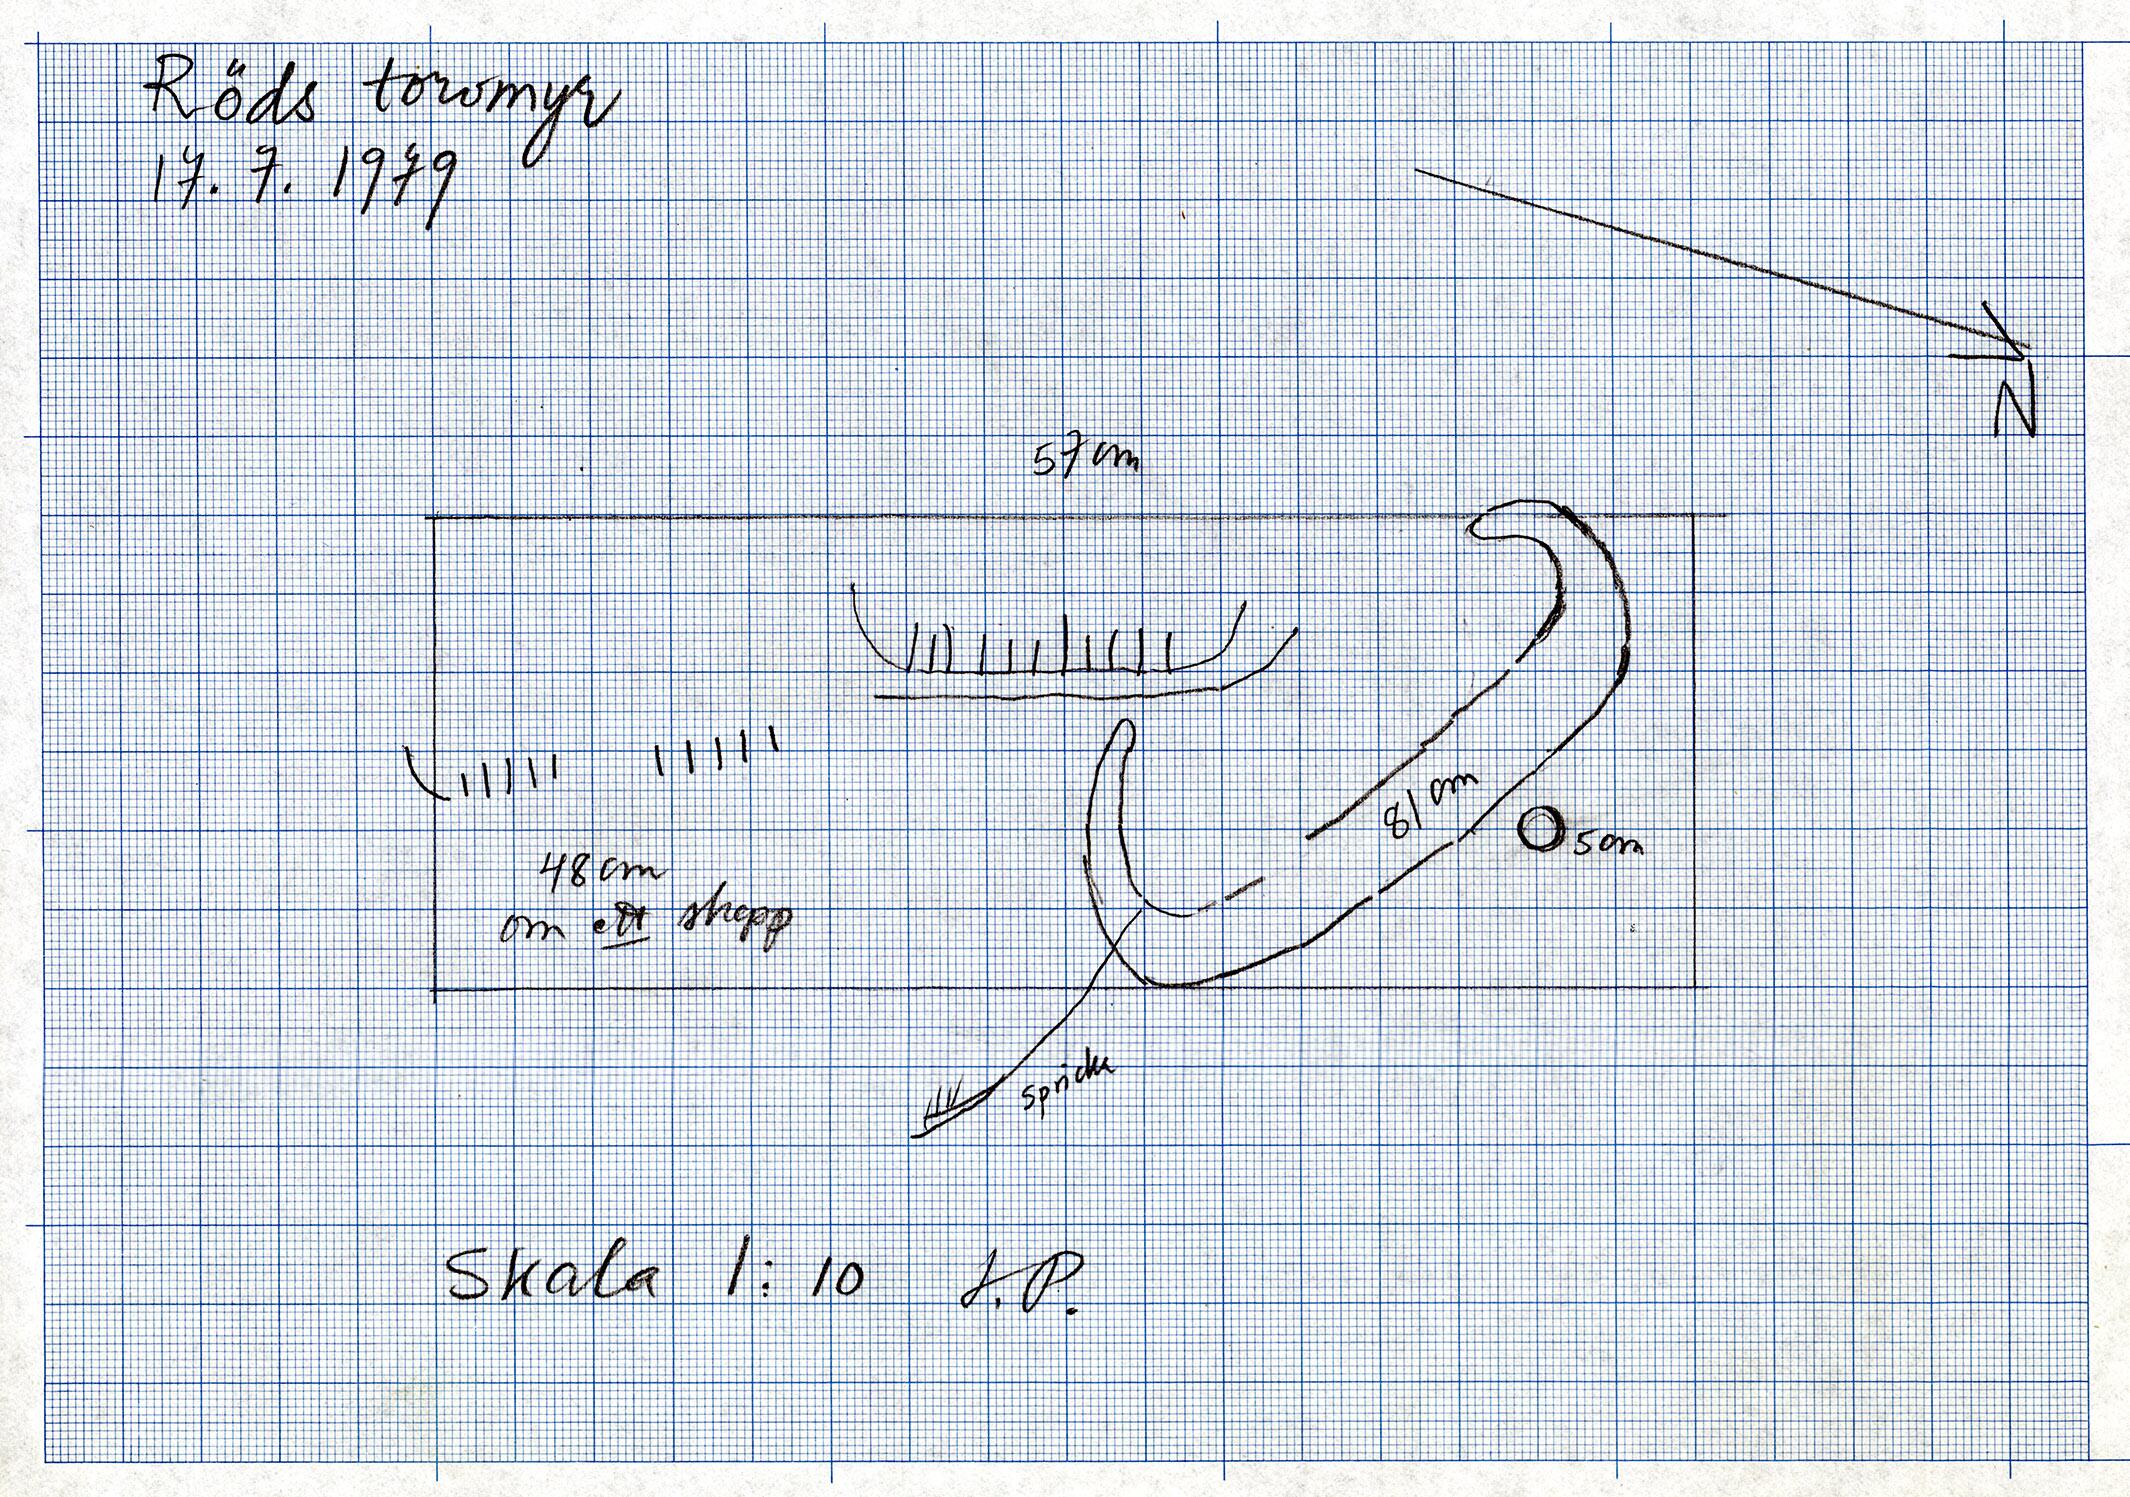 Röds torvmyr
17. 7. 1979
N
57 cm
81 cm
5 cm
48 cm
om ett skepp
spricka
Skala 1:10 J.P.